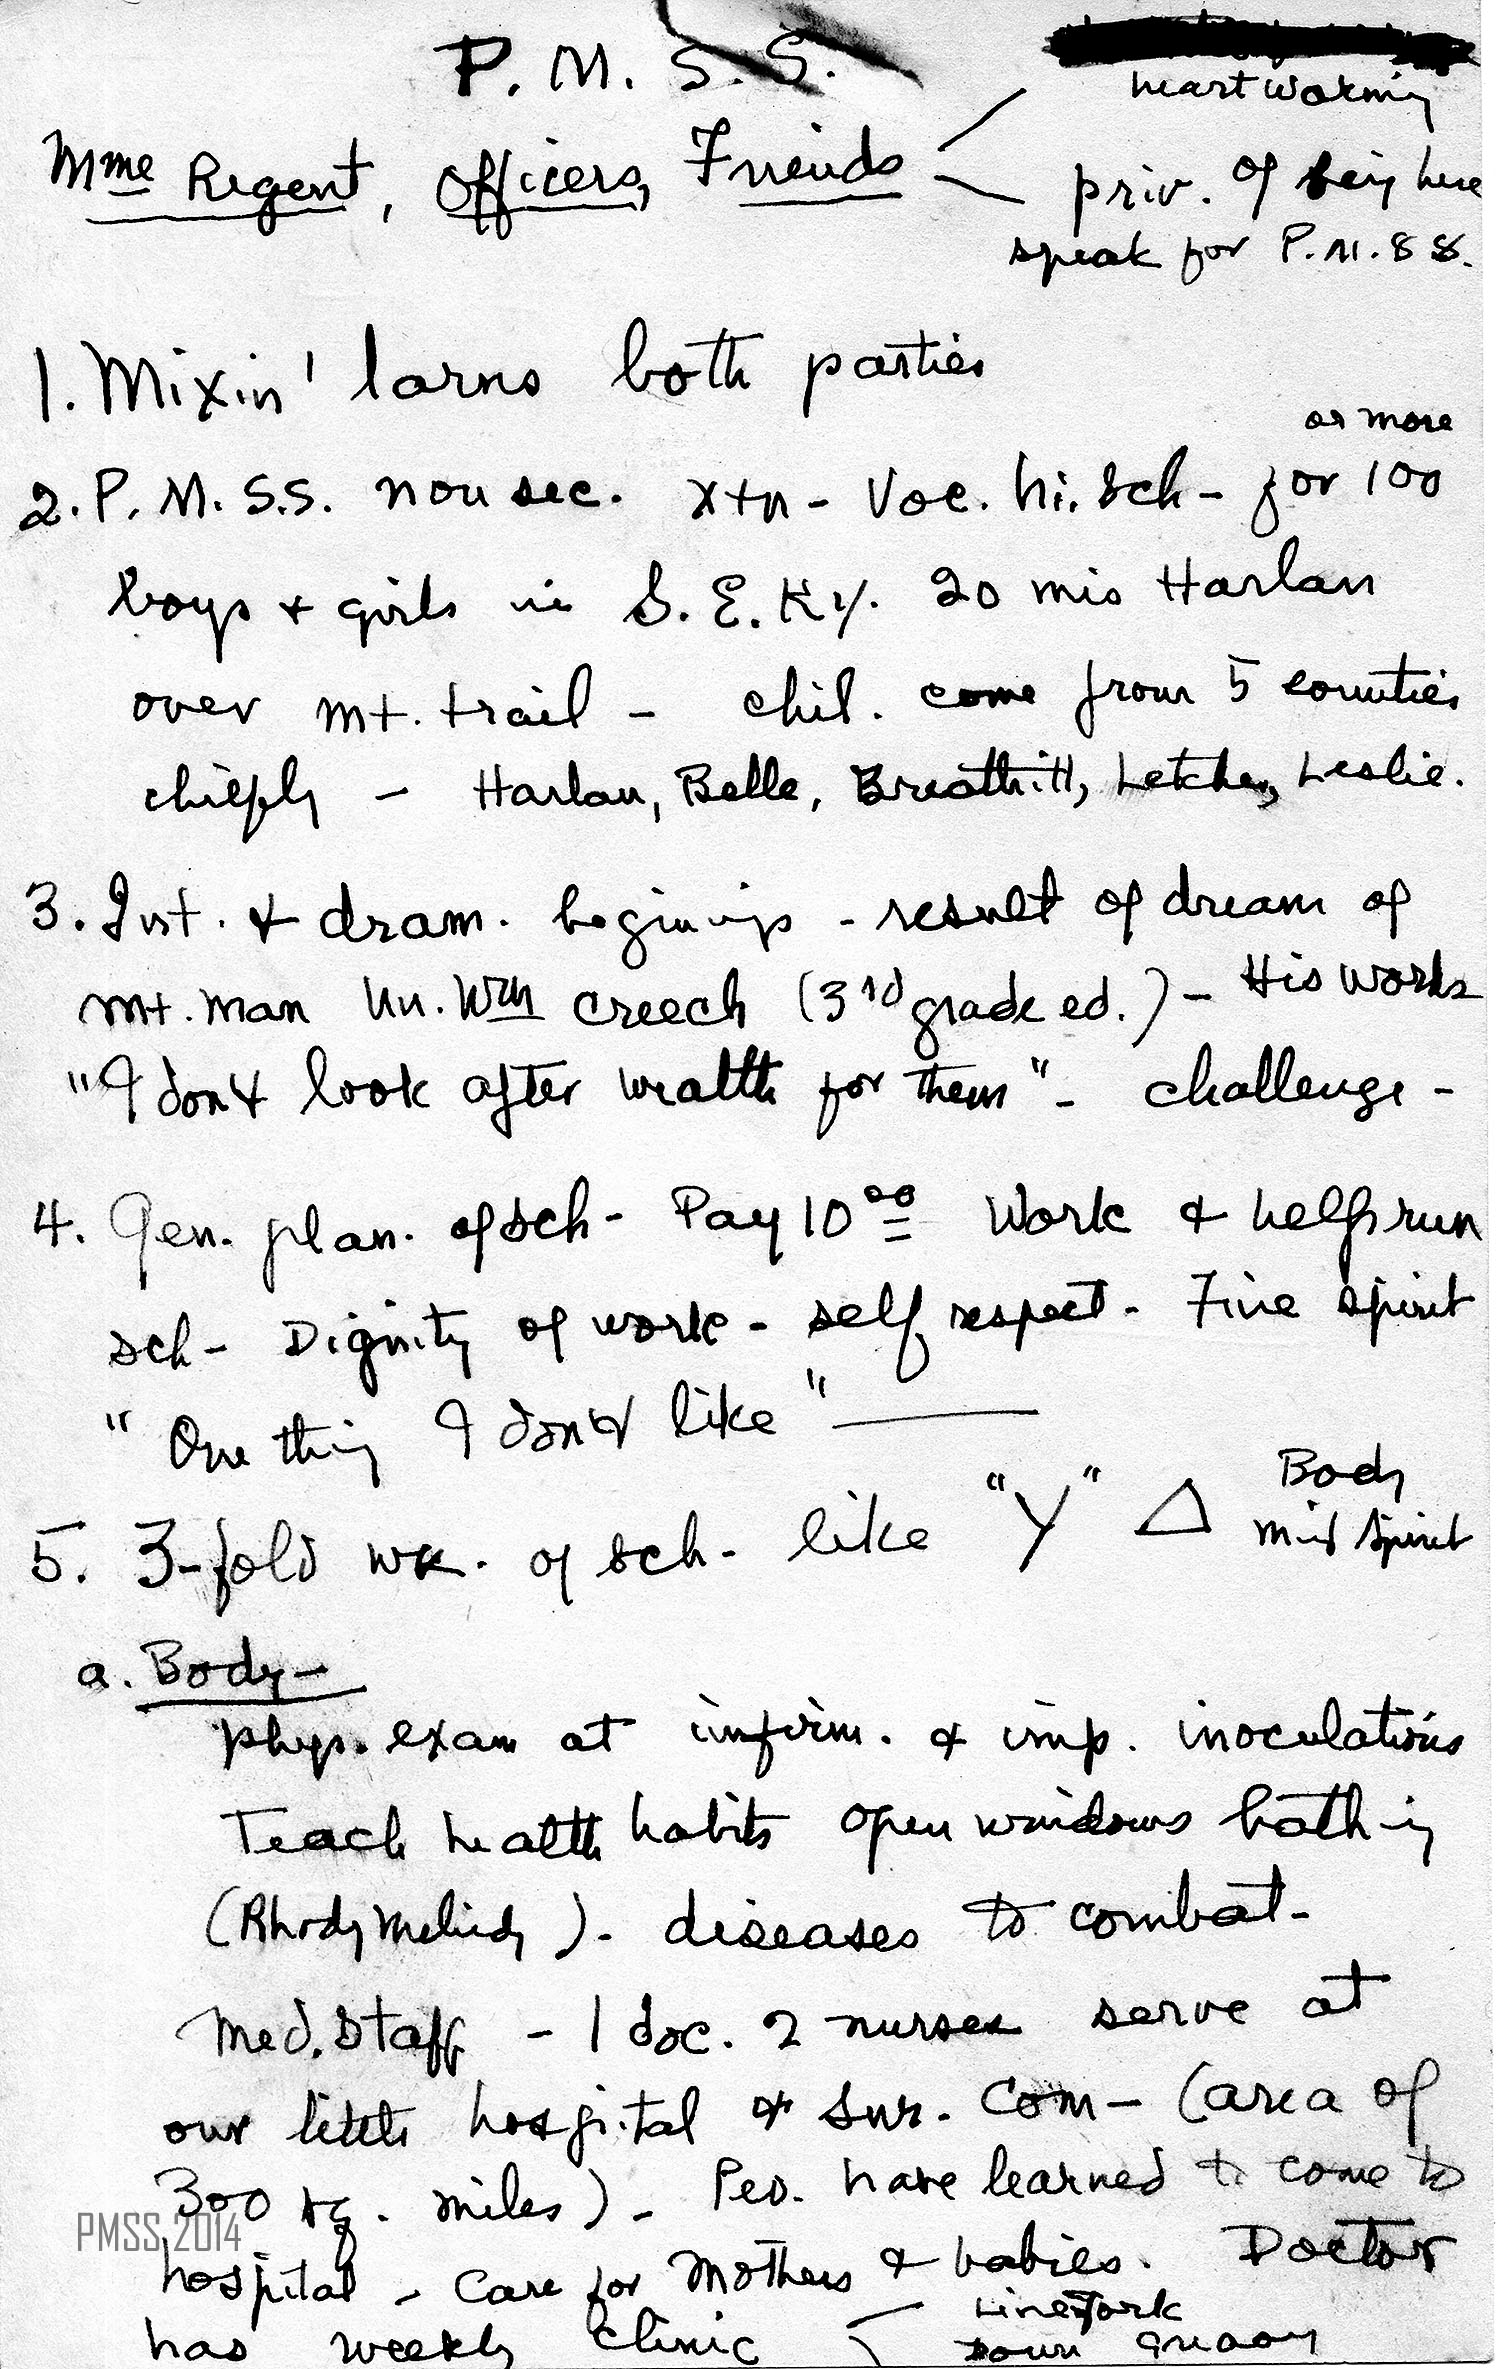 P. M. S. S.
heartwarming
Mme Regent, Officers, Friends
priv. of being here
speak for P.M.S S.
1. Mixin' larns both parties
or more
2. P. M. S.S. nonsec. xtn - Voc. hi. sch - for 100
boys + girls in S. E. Ky. 20 mis Harlan
over mt. trail - chil. come from 5 counties
chiefly - Harlan, Belle, Breathitt, Letcher, Leslie.
3. Int. & dram. beginnings - result of dream of
mt. man Un. Wm Creech (3rd grade ed.) - His works
"I don't look after wealth for them" - challenge -
4. Gen. plan. of sch - Pay 10 00 Work & helps run
sch - Dignity of work - self respect - Fine spirit
"One thing I don't like"
5. 3-fold wk. of sch - like "Y" △ Body
Mind Spirit
a. Body -
phys. exam at infirm. & imp. inoculations
Teach health habits open windows bathing
(Rhody Melindy) - diseases to combat -
Med. Staff - 1 doc. 2 nurses serve at
our little hospital & sur. com - (area of
300 sq. miles) - Peo. have learned to come to
PMSS 2014
hospital - Care for Mothers & babies. Doctor
has weekly clinic
Linefork
Down